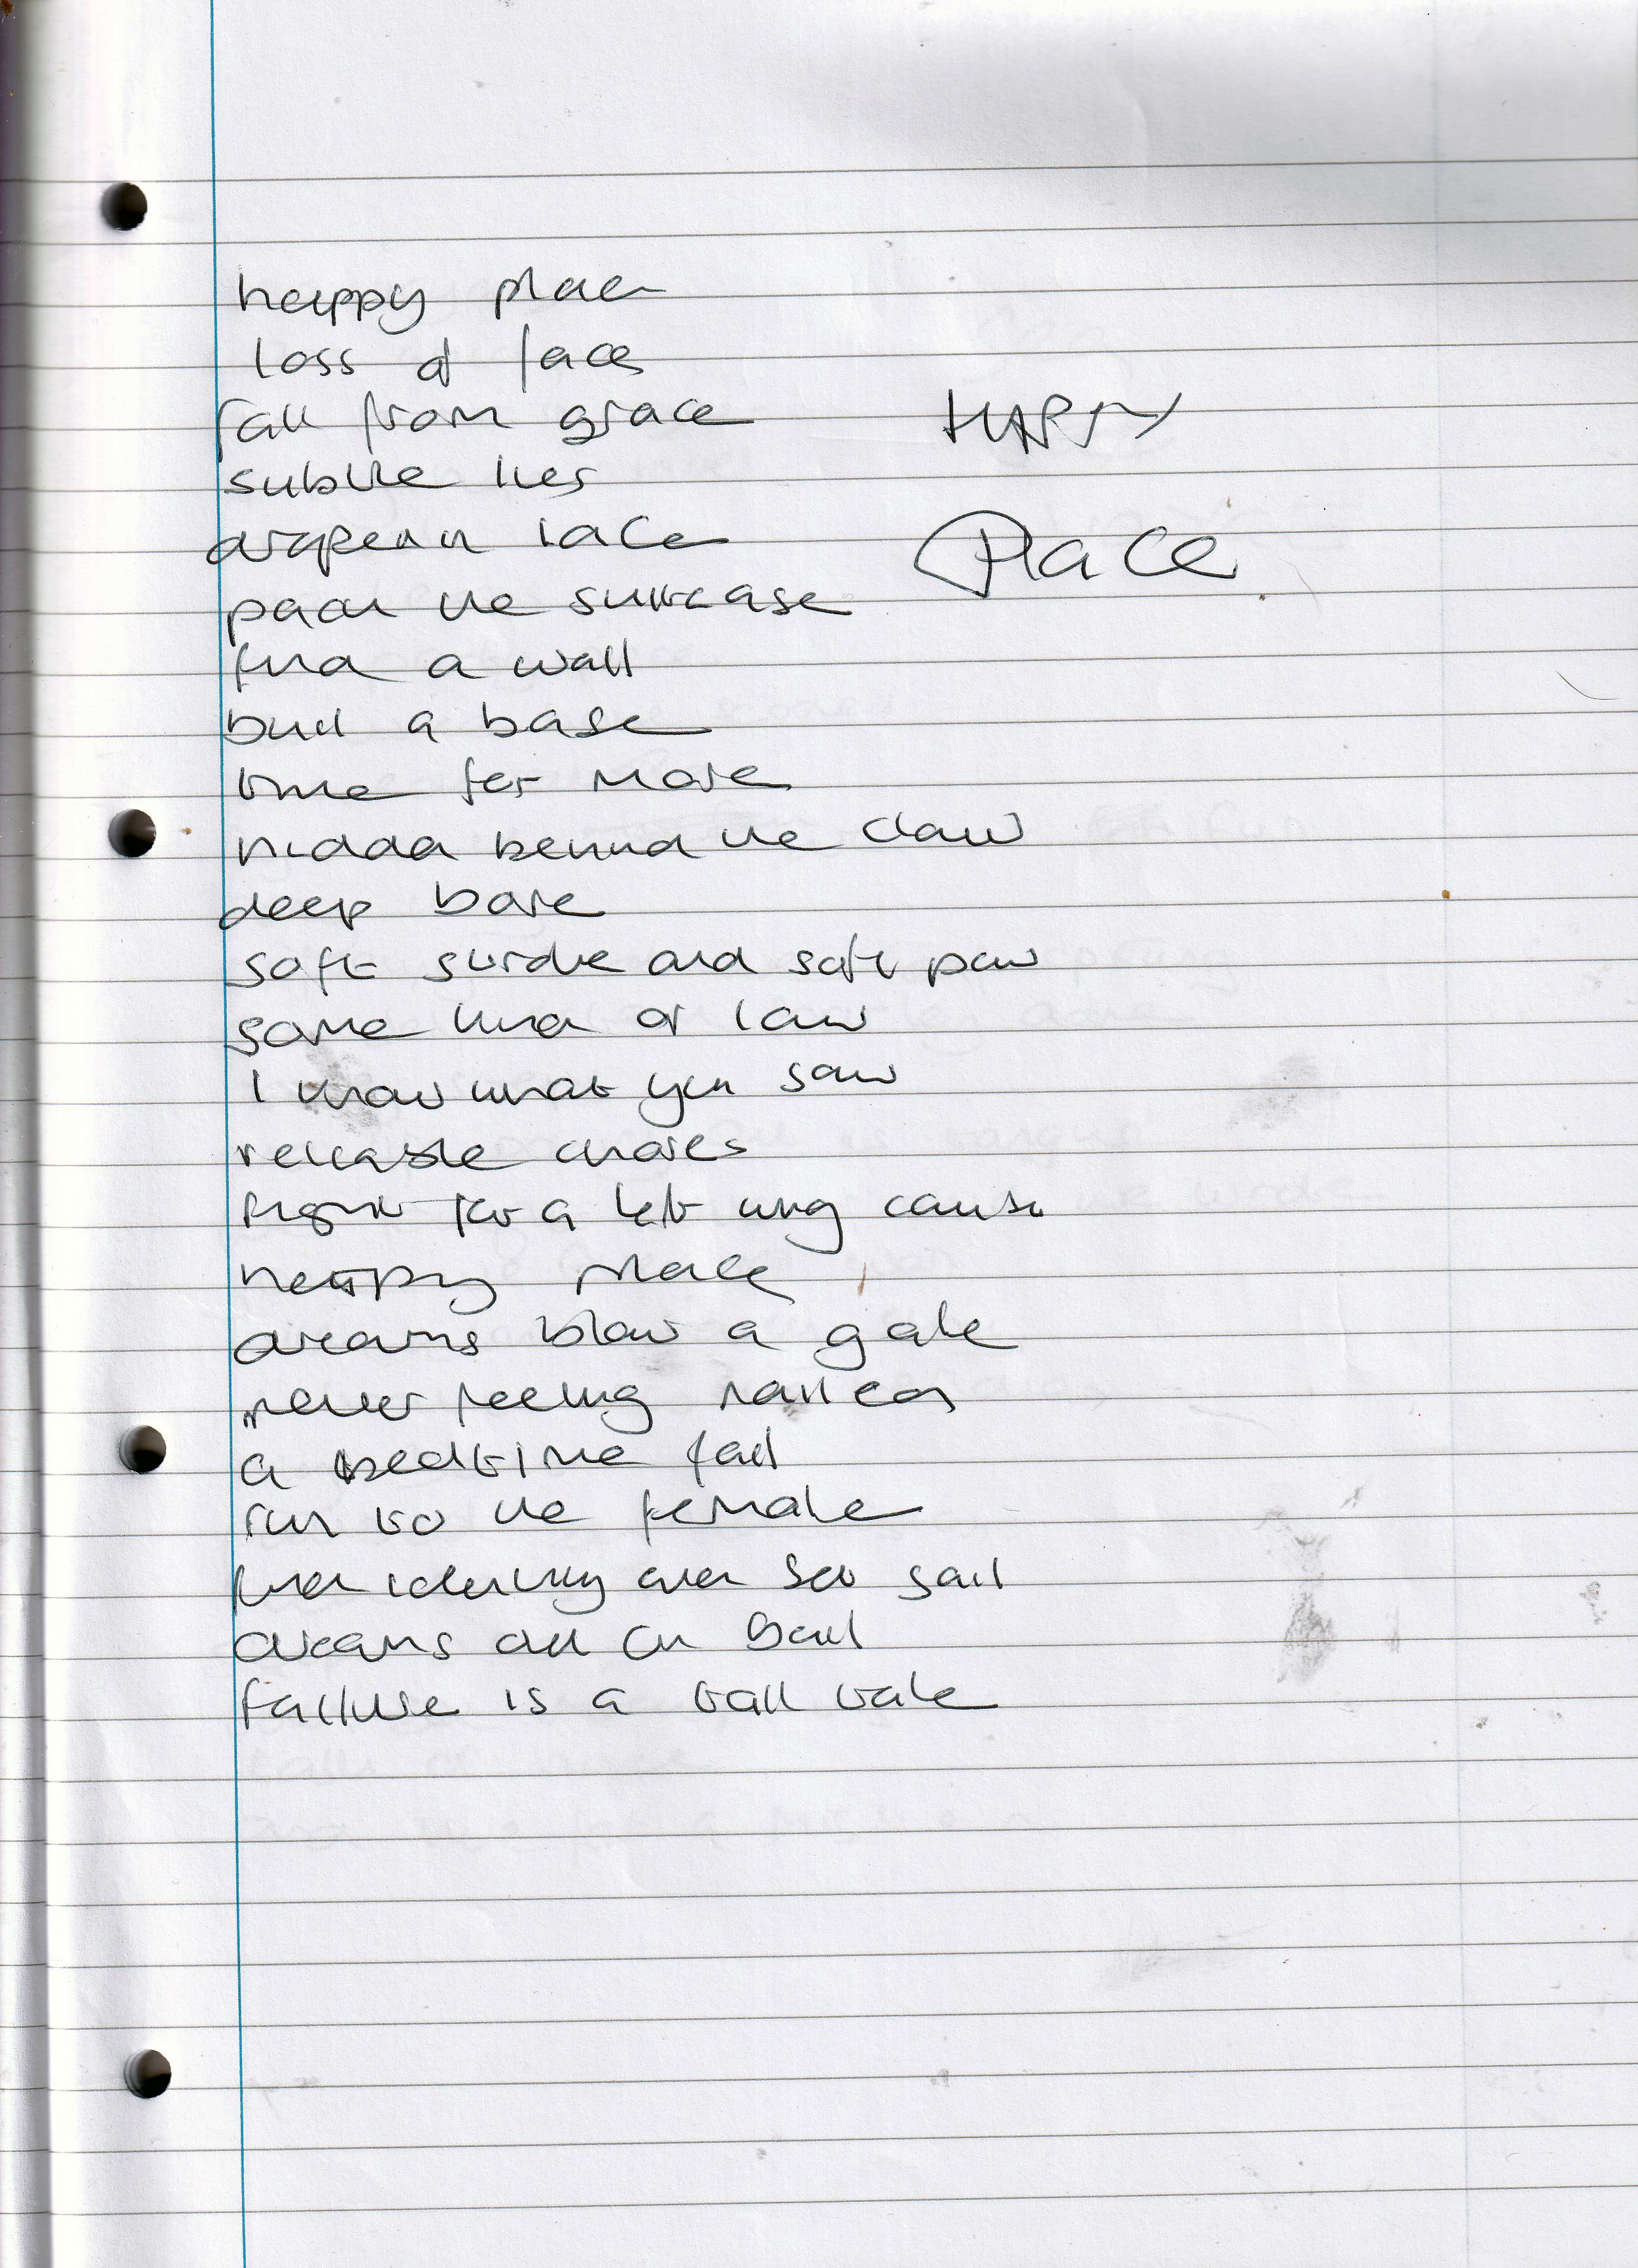 happy place
loss of face
fall from grace
subtle lies
drapean lace
pack the suitcase
find a wall
build a base
time for more
hidden behind the claw
deep bore
soft stroke and soft paw
some kind of law
I know what you saw
reliable chores
fight for a left wing cause
happy place
dreams blow a gale
never feeling nailed
a bedtime fail
run to the female
find identity and set sail
dreams all on bail
failure is a tall tale
HAPPY
Place